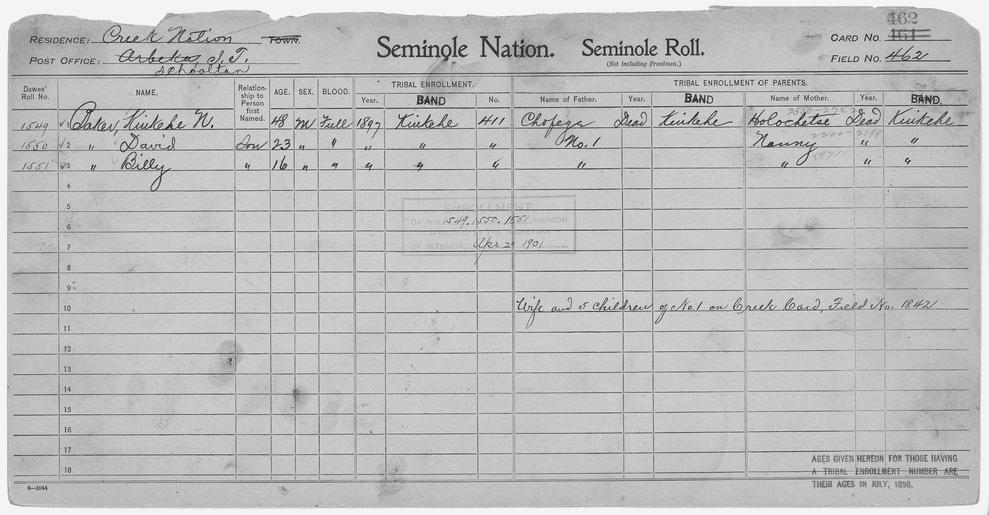 RESIDENCE: Creek Nation TOWN. Seminole Nation. Seminole Roll. CARD NO. 462 461
POST OFFICE: Arbeka, I.T. (Not including Freedmen.) FIELD NO. 462
Schooltan
Dawes' Roll No. NAME. Relationship to Person first Named. AGE. SEX. BLOOD. TRIBAL ENROLLMENT. TRIBAL ENROLLMENT OF PARENTS.
Year. BAND No. Name of Father. Year. BAND Name of Mother. Year. BAND.
1549 √1 Baker, Kinkehe N. 48 M Full 1897 Kinkehe 411 Chofega Dead Kinkehe Holochetse Dead Kinkehe
1550 √2 " David Son 23 " " " " " No. 1 Nanny " "
1551 √3 " Billy " 16 " " " " " " " " "
4
5
ENROLLMENT
6 OF 1549, 1550, 1551 HEREON
APPROVED BY THE SECRETARY
7 OF INTERIOR Apr 2 1901
8
9
10 Wife and 5 children of No. 1 on Creek Card, Field No. 1842
11
12
13
14
15
16
17
18
AGES GIVEN HEREON FOR THOSE HAVING
A TRIBAL ENROLLMENT NUMBER ARE
THEIR AGES IN JULY, 1898.
6—1044